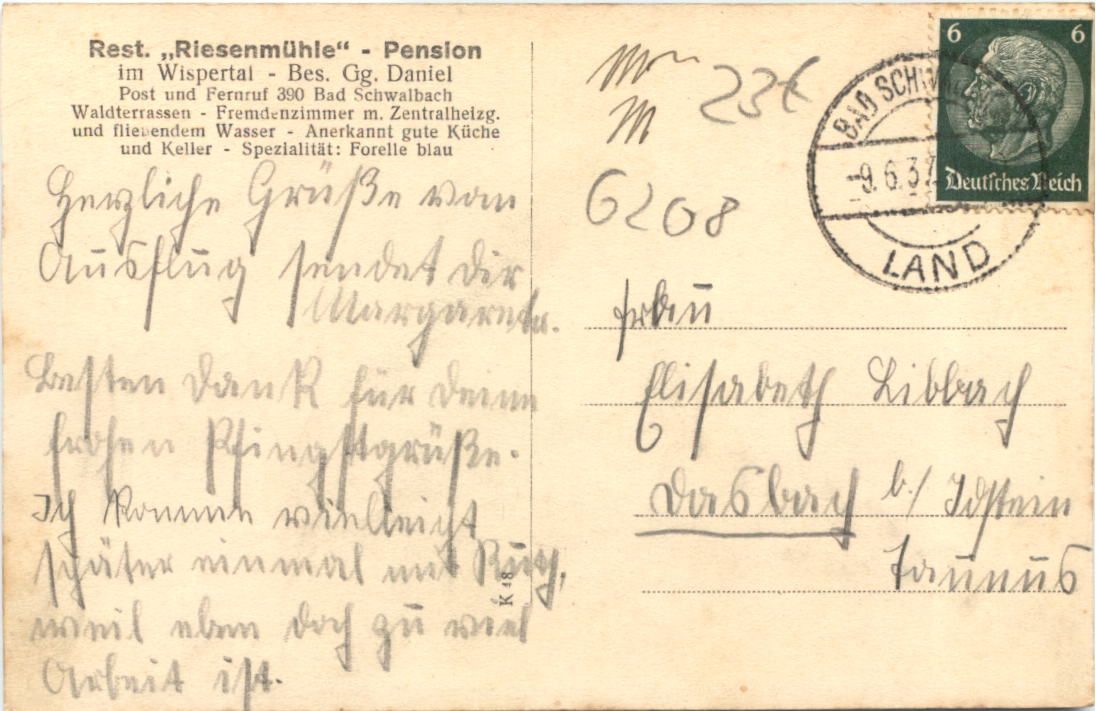 Rest. „Riesenmühle“ - Pension
im Wispertal - Bes. Gg. Daniel
Post und Fernruf 390 Bad Schwalbach
Waldterrassen - Fremdenzimmer m. Zentralheizg.
und fließendem Wasser - Anerkannt gute Küche
und Keller - Spezialität: Forelle blau
Herzliche Grüße vom
Ausflug sendet dir
Margarete.
Besten Dank für deine
frohen Pfingstgrüße.
Ich komme vielleicht
später einmal mit Ruth,
weil eben doch zu viel
Arbeit ist.
K 48
23€
6208
BAD SCHWALBACH
-9.6.37
LAND
6 6
Deutsches Reich
Frau
Elisabeth Libbach
Dasbach b/ Idstein
Taunus